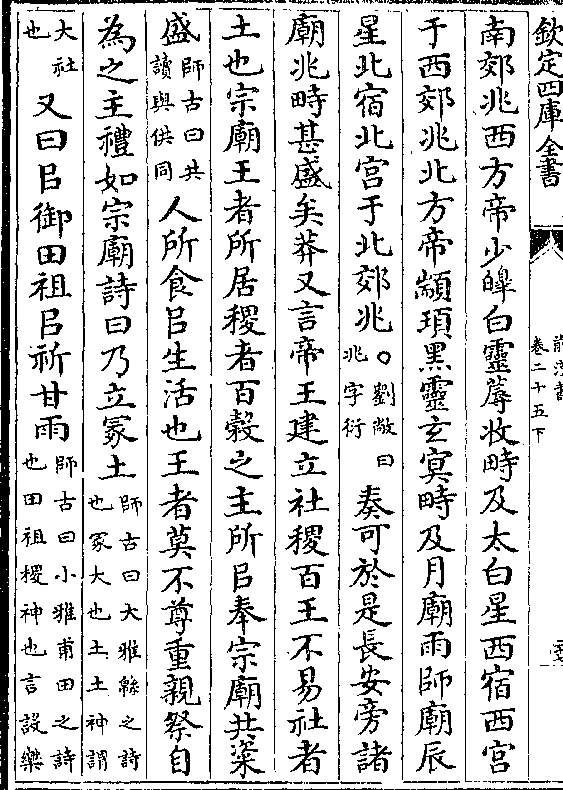 欽定四庫全書
前漢書
卷二十五下
南郊兆西方帝少皞白靈蓐收畤及太白星西宿西宮
于西郊兆北方帝顓頊黑靈玄冥畤及月廟雨師廟辰
星北宿北宮于北郊兆○劉敞曰兆字衍奏可於是長安旁諸
廟兆畤甚盛矣莽又言帝王建立社稷百王不易社者
土也宗廟王者所居稷者百穀之主所㠯奉宗廟共粢
盛師古曰共讀與供同人所食㠯生活也王者莫不尊重親祭自
為之主禮如宗廟詩曰乃立冢土師古曰大雅緜之詩也冢大也土土神謂
大社也又曰㠯御田祖㠯祈甘雨師古曰小雅甫田之詩也田祖稷神也言設樂